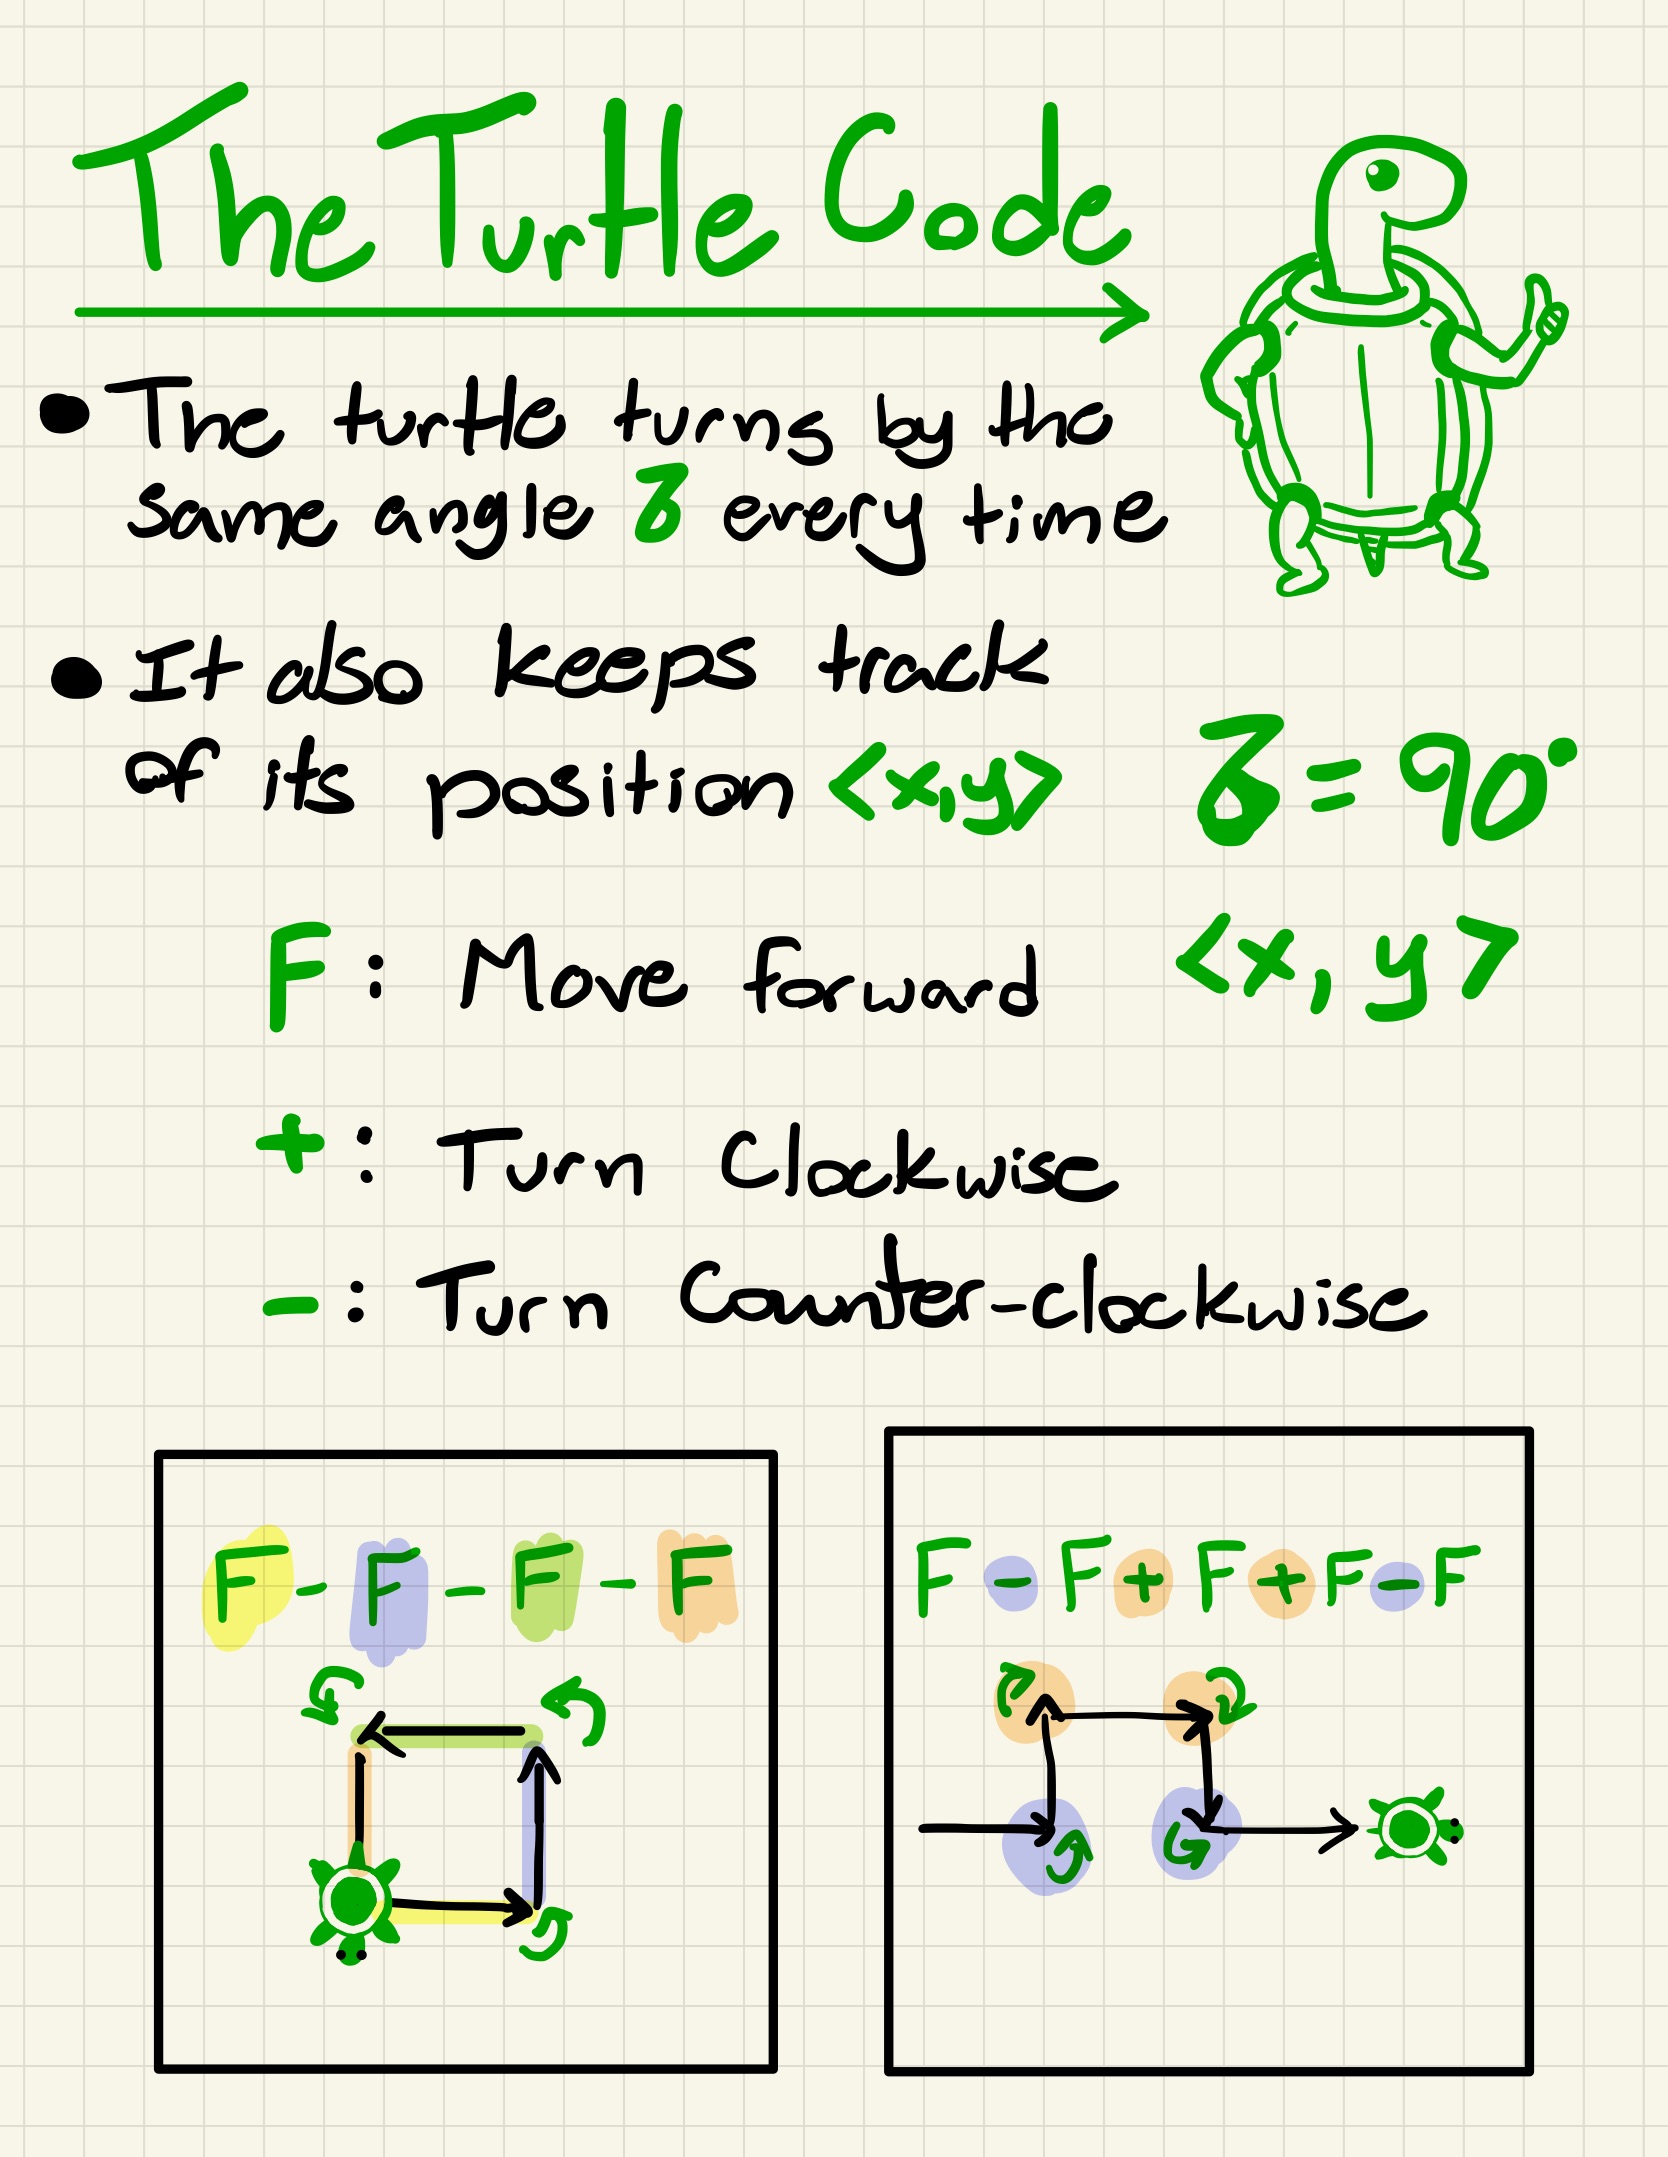 The Turtle Code
• The turtle turns by the
same angle δ every time
• It also keeps track
of its position <x,y>
δ = 90°
F : Move forward
<x, y>
+ : Turn Clockwise
- : Turn Counter-clockwise
F - F - F - F
F - F + F + F - F